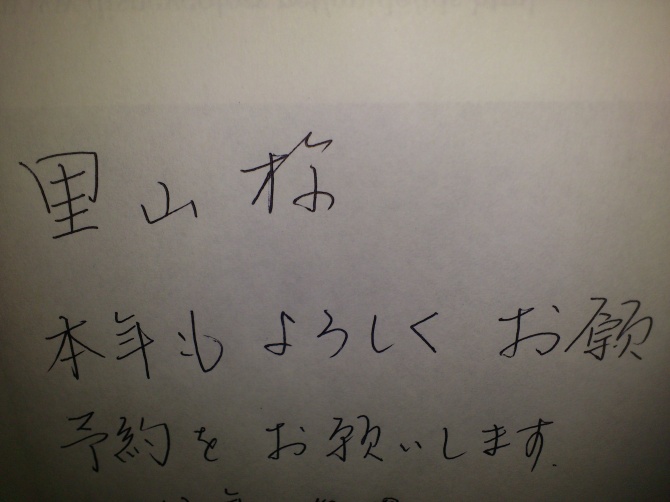 里山様
本年もよろしくお願
予約をお願いします.